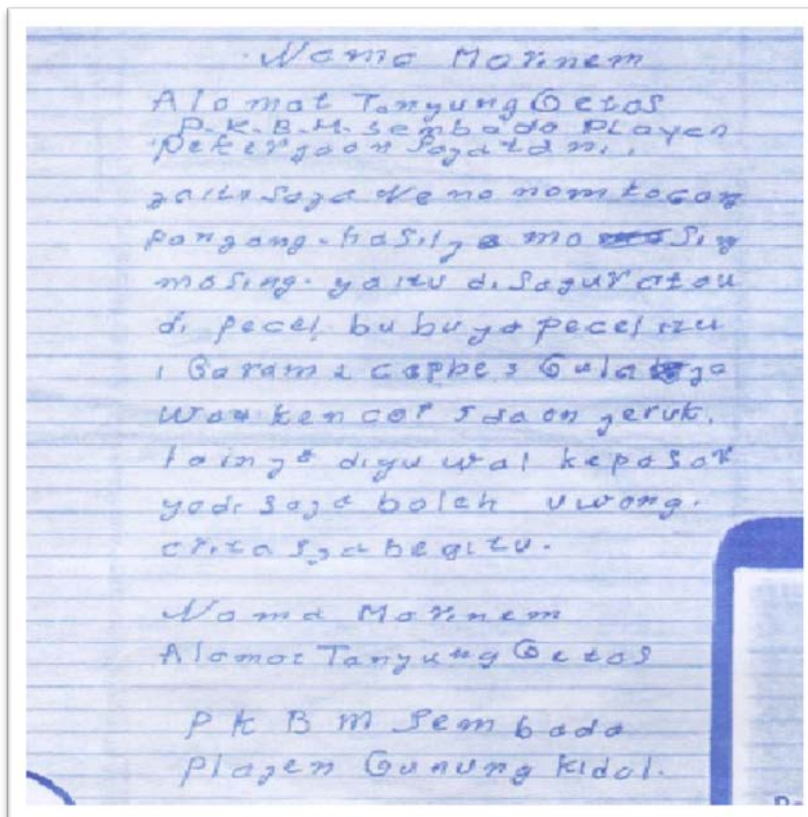 Nama Marinem
Alamat Tanyung Getas
P.K.B.M. Sembada Playen
Pekerjaan Saya tani.
yaitu Saya Nenanam kacang
pangang. hasilya ma Sing
masing. yaitu di Sayur atau
di pecel bubuya pecel itu
1 Garam 2 cabbe 3 Gula
Wau kencor 5 daon jeruk.
lainya diyuwal kepasar
yadi Saya boleh uwong.
crita Sya begitu.
Nama Marinem
Alamat Tanyung Getas
P K B M Sembada
Playen Gunung Kidal.